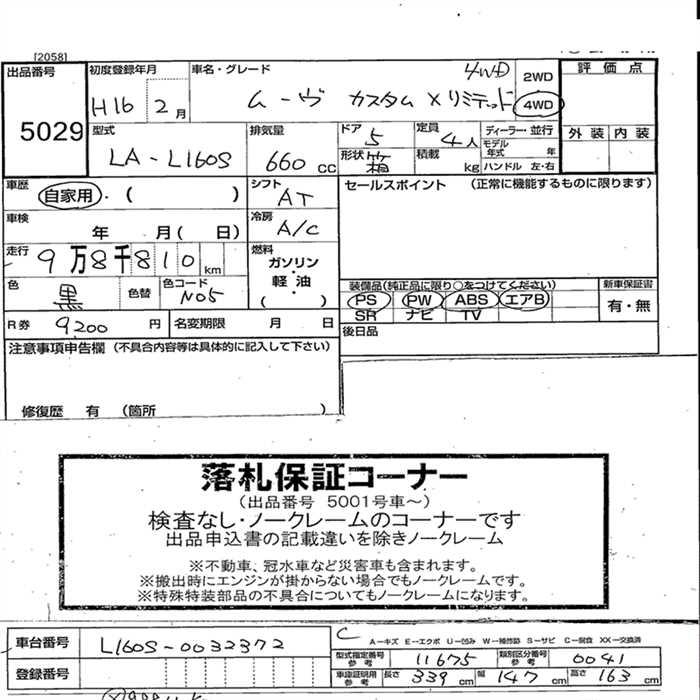 [2058]
出品番号 5029
初度登録年月 H16 2月
車名・グレード ムーヴ カスタム Xリミテッド 4WD
2WD
4WD
評価点
外装 内装
型式 LA-L160S
排気量 660 CC
ドア 5
定員 4人
形状 箱
積載 kg
ディーラー・並行
モデル年式 年
ハンドル 左・右
車歴 自家用・( )
シフト AT
セールスポイント (正常に機能するものに限ります)
車検 年 月( 日)
冷房 A/C
走行 9万8千810km
燃料 ガソリン・軽油・( )
色 黒 色替 色コード N05
装備品(純正品に限り○をつけてください) 新車保証書
PS PW ABS エアB 有・無
SR ナビ TV
R券 9200円 名変期限 月 日
後日品
注意事項申告欄 (不具合内容等は具体的に記入して下さい)
修復歴 有 (箇所 )
落札保証コーナー
(出品番号 5001号車〜)
検査なし・ノークレームのコーナーです
出品申込書の記載違いを除きノークレーム
※不動車、冠水車など災害車も含まれます。
※搬出時にエンジンが掛からない場合でもノークレームです。
※特殊特装部品の不具合についてもノークレームになります。
車台番号 L160S-0032372
C
A-キズ E-エクボ U-凹み W-補修跡 S-サビ C-腐食 XX-交換済
型式指定番号 参考 11675 類別区分番号 参考 0041
登録番号
車庫証明用 参考 長さ 339cm 幅 147cm 高さ 163cm